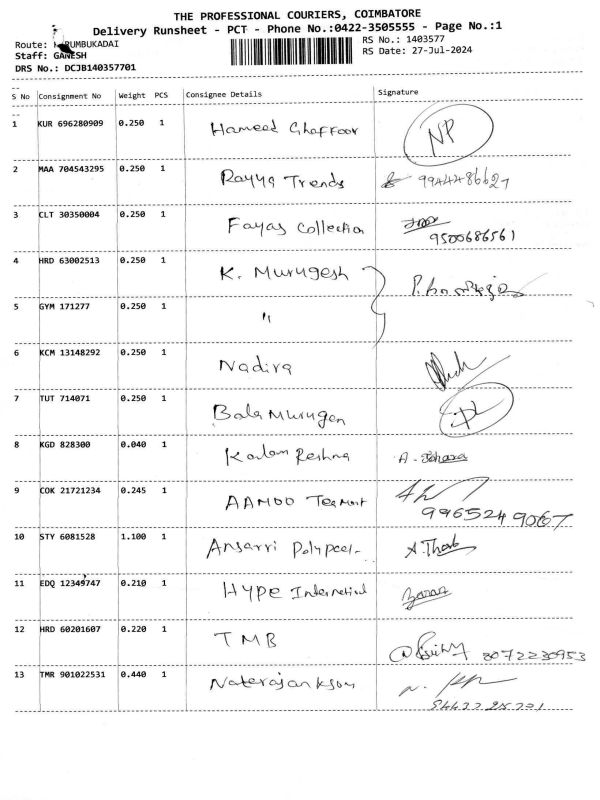 THE PROFESSIONAL COURIERS, COIMBATORE
Delivery Runsheet - PCT - Phone No.:0422-3505555 - Page No.:1
Route: K RUMBUKADAI RS No.: 1403577
Staff: GANESH RS Date: 27-Jul-2024
DRS No.: DCJB140357701
S No Consignment No Weight PCS Consignee Details Signature
1 KUR 696280909 0.250 1 Hameed Ghaffoor NP
2 MAA 704543295 0.250 1 Rayya Trends 9944486627
3 CLT 30350004 0.250 1 Fayas Collection
9500686561
4 HRD 63002513 0.250 1 K. Murugesh
5 GYM 171277 0.250 1 "
6 KCM 13148292 0.250 1 Nadira
7 TUT 714071 0.250 1 Bala Murugen
8 KGD 828300 0.040 1 Kalam Reshma A.
9 COK 21721234 0.245 1 AAMOO Teamart
9965249067
10 STY 6081528 1.100 1 Ansarri A. Thab
11 EDQ 12349747 0.210 1 Hype
12 HRD 60201607 0.220 1 TMB 8072230953
13 TMR 901022531 0.440 1 Naterajan kson